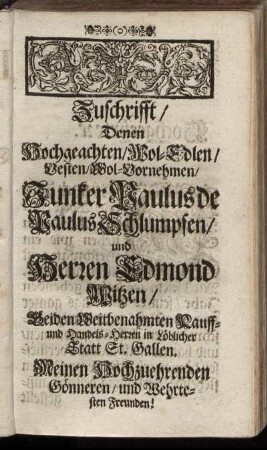 Zuschrifft /
Denen
Hochgeachten / Wol-Edlen /
Vesten / Wol-Vornehmen /
Junker Paulus de
Paulus Schlumpfen /
und
Herren Edmond
Witzen /
Beiden Weitbenahmten Kauff-
und Handels-Herren in Löblicher
Statt St. Gallen.
Meinen Hochzuehrenden
Gönneren / und Wehrte-
sten Freunden!